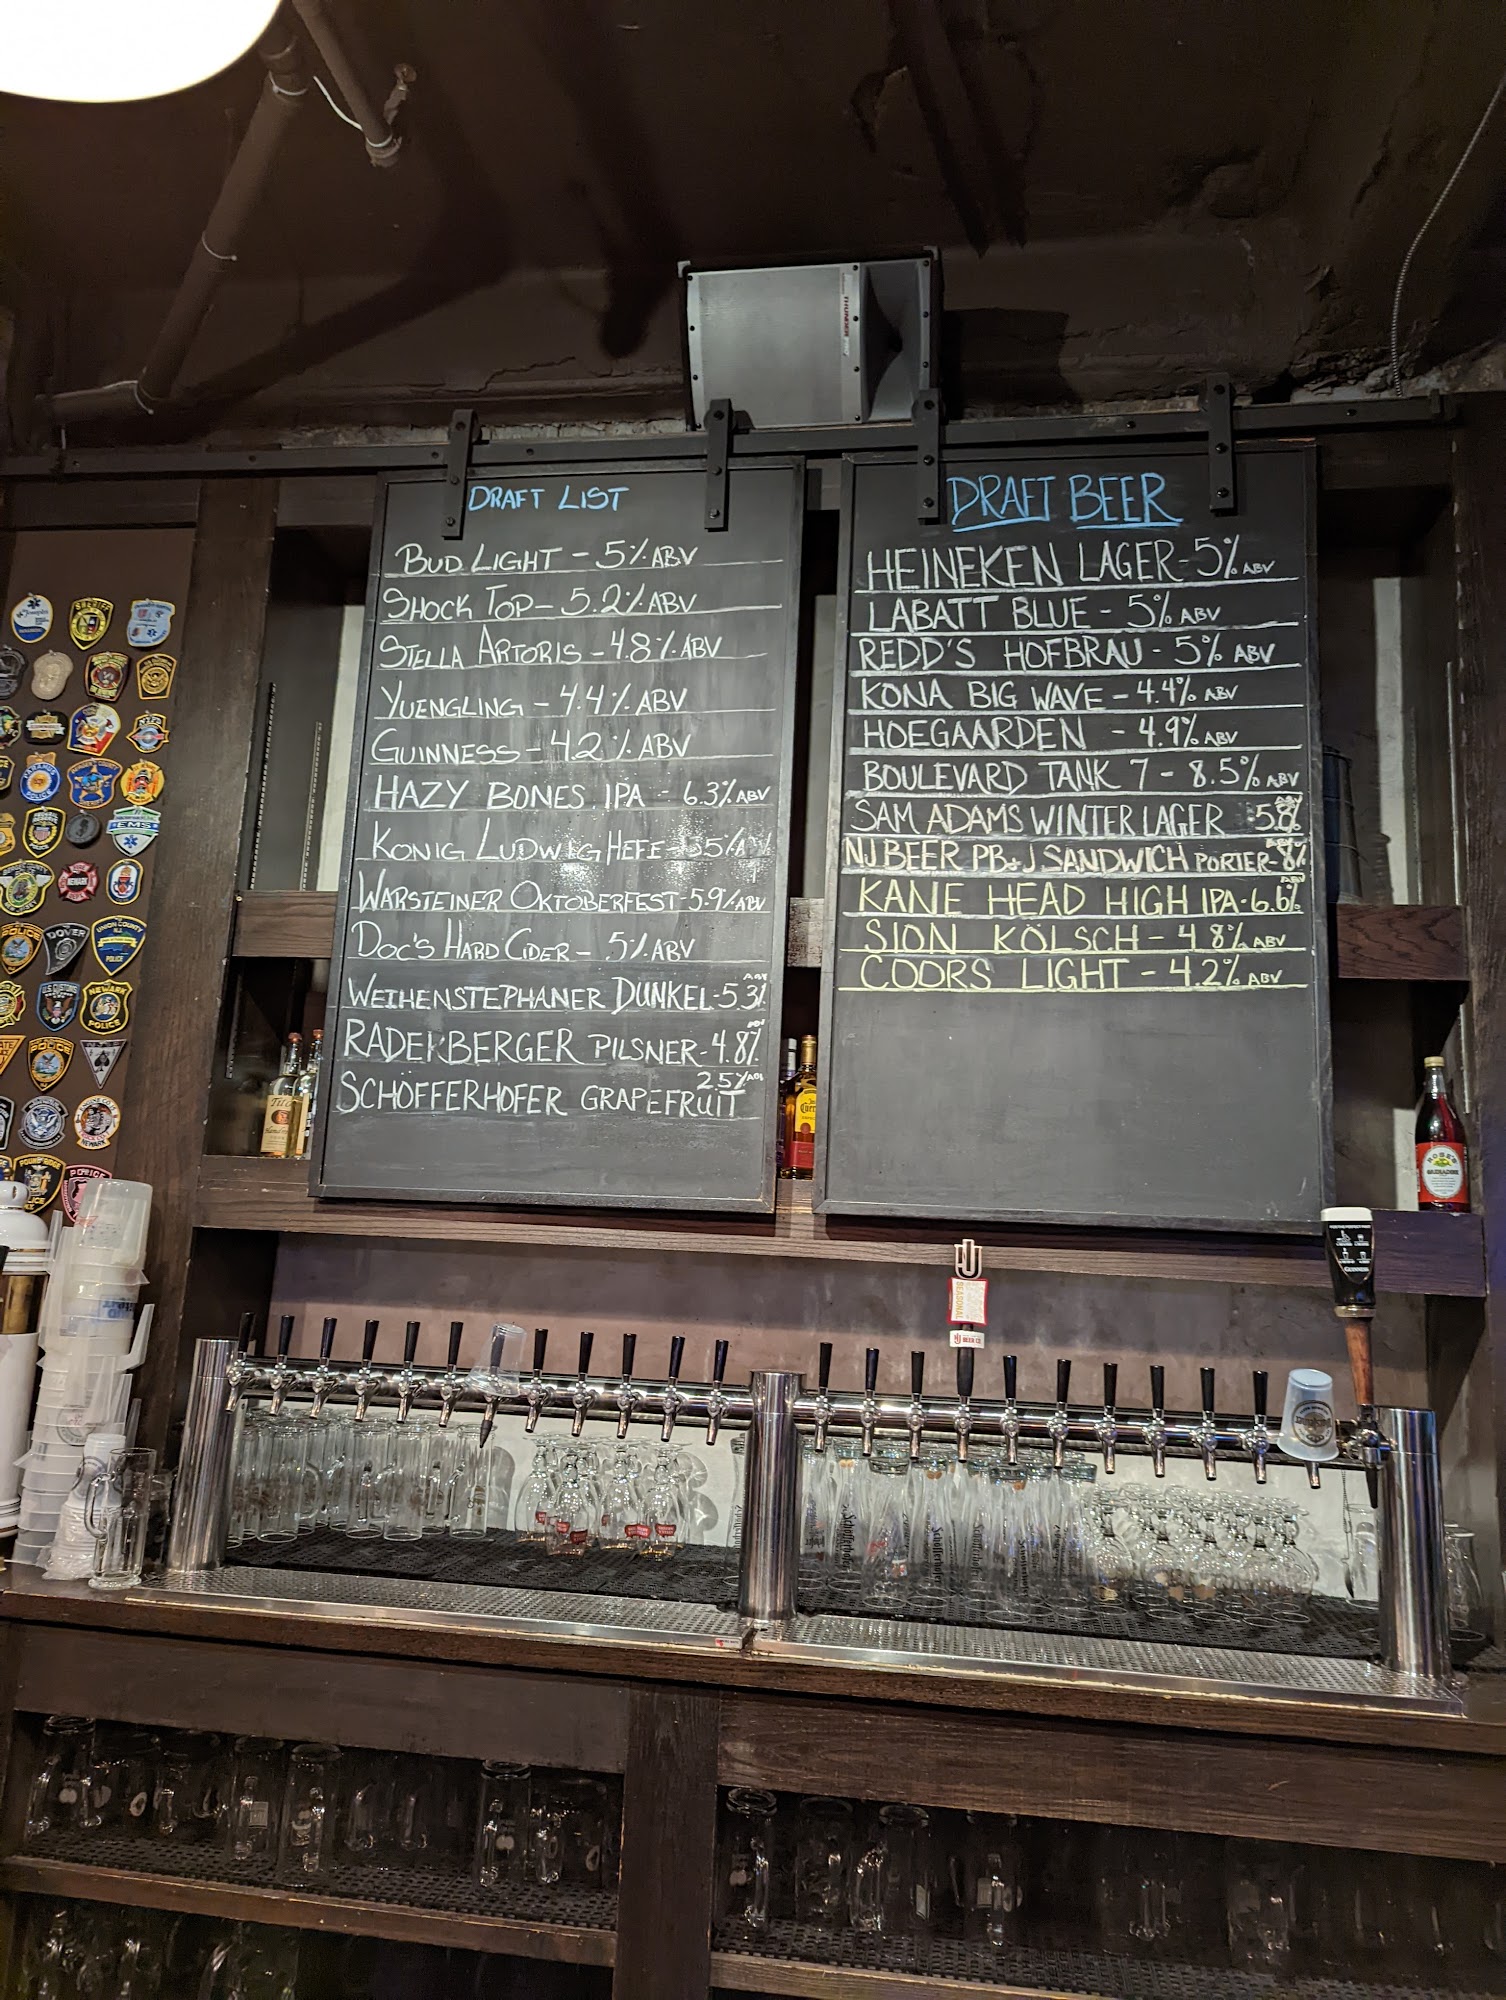 THUNDER
DRAFT LIST
BUD LIGHT - 5% ABV
SHOCK TOP - 5.2% ABV
STELLA ARTORIS - 4.8% ABV
YUENGLING - 4.4% ABV
GUINNESS - 4.2% ABV
HAZY BONES IPA - 6.3% ABV
KONIG LUDWIG HEFE
WARSTEINER OKTOBERFEST - 5.9% ABV
DOC'S HARD CIDER - 5% ABV
ABV
WEIHENSTEPHANER DUNKEL - 5.3%
RADEKBERGER PILSNER - 4.8%
2.5% ABV
SCHÖFFERHOFER GRAPEFRUIT
DRAFT BEER
HEINEKEN LAGER - 5% ABV
LABATT BLUE - 5% ABV
REDD'S HOFBRAU - 5% ABV
KONA BIG WAVE - 4.4% ABV
HOEGAARDEN - 4.9% ABV
BOULEVARD TANK 7 - 8.5% ABV
ABV
SAM ADAMS WINTER LAGER 5.8%
NJ BEER PB+J SANDWICH PORTER - 8%
KANE HEAD HIGH IPA - 6.6%
SION KÖLSCH - 4.8% ABV
COORS LIGHT - 4.2% ABV
SHERIFF
EMS
NEWARK
POLICE
DOVER
UNION COUNTY
N.J.
POLICE
U.S. CUSTOMS
NEWARK
POLICE
POLICE
NEWARK
POUND RIDGE
POLICE
POLICE
Tito's
ROSE'S
GRENADINE
SEASONAL
BEER CO.
GUINNESS
Schöfferhofer